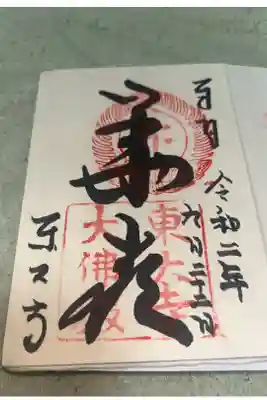 奉拝
令和二年
九月二十二日
華嚴
東大寺
大佛殿
東大寺